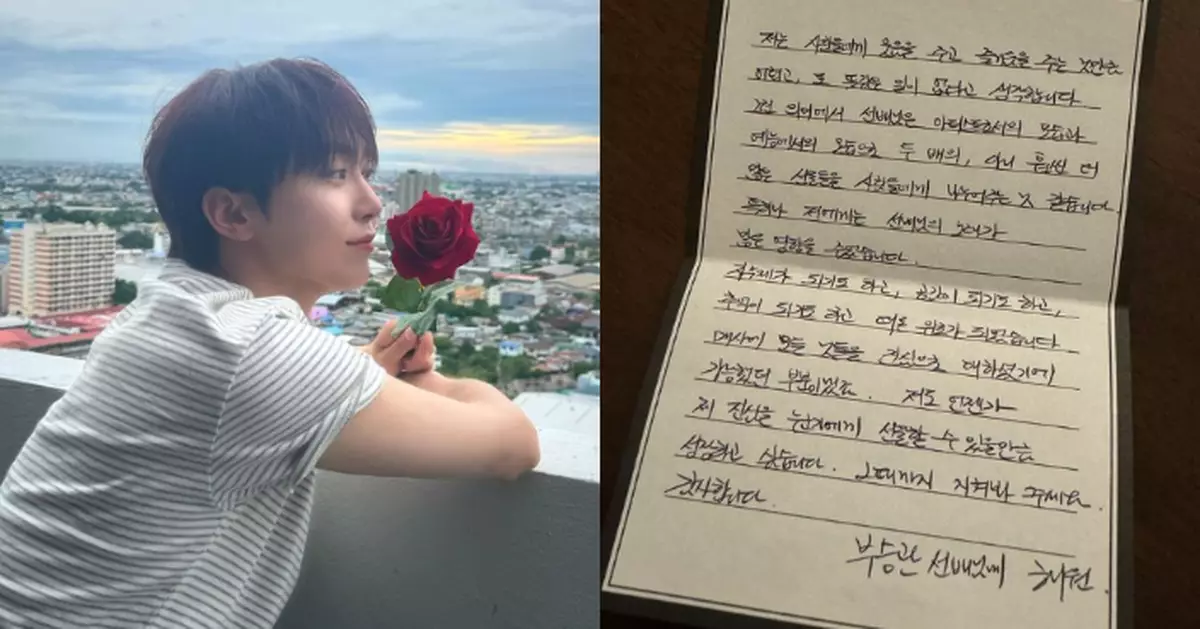 저는 사람들에게 웃음을 주고 즐거움을 주는 것만큼
어렵고, 또 뜻깊은 일이 없다고 생각합니다
그런 의미에서 선배님은 아티스트로서의 모습과
예능에서의 모습으로 두 배의, 아니 훨씬 더
많은 선물들을 사람들에게 나눠주는 것 같습니다.
특히나 저에게는 선배님의 노래가
많은 영향을 주었습니다.
자극제가 되기도 하고, 공감이 되기도 하고,
추억이 되기도 하고 때론 위로가 되었습니다
매사에 모든 것들을 진심으로 대하셨기에
가능했던 부분이겠죠. 저도 언젠가
제 진심을 누군가에게 선물할 수 있을만큼
성장하고 싶습니다. 그때까지 지켜봐 주세요.
감사합니다.
부승관 선배님께 해원.